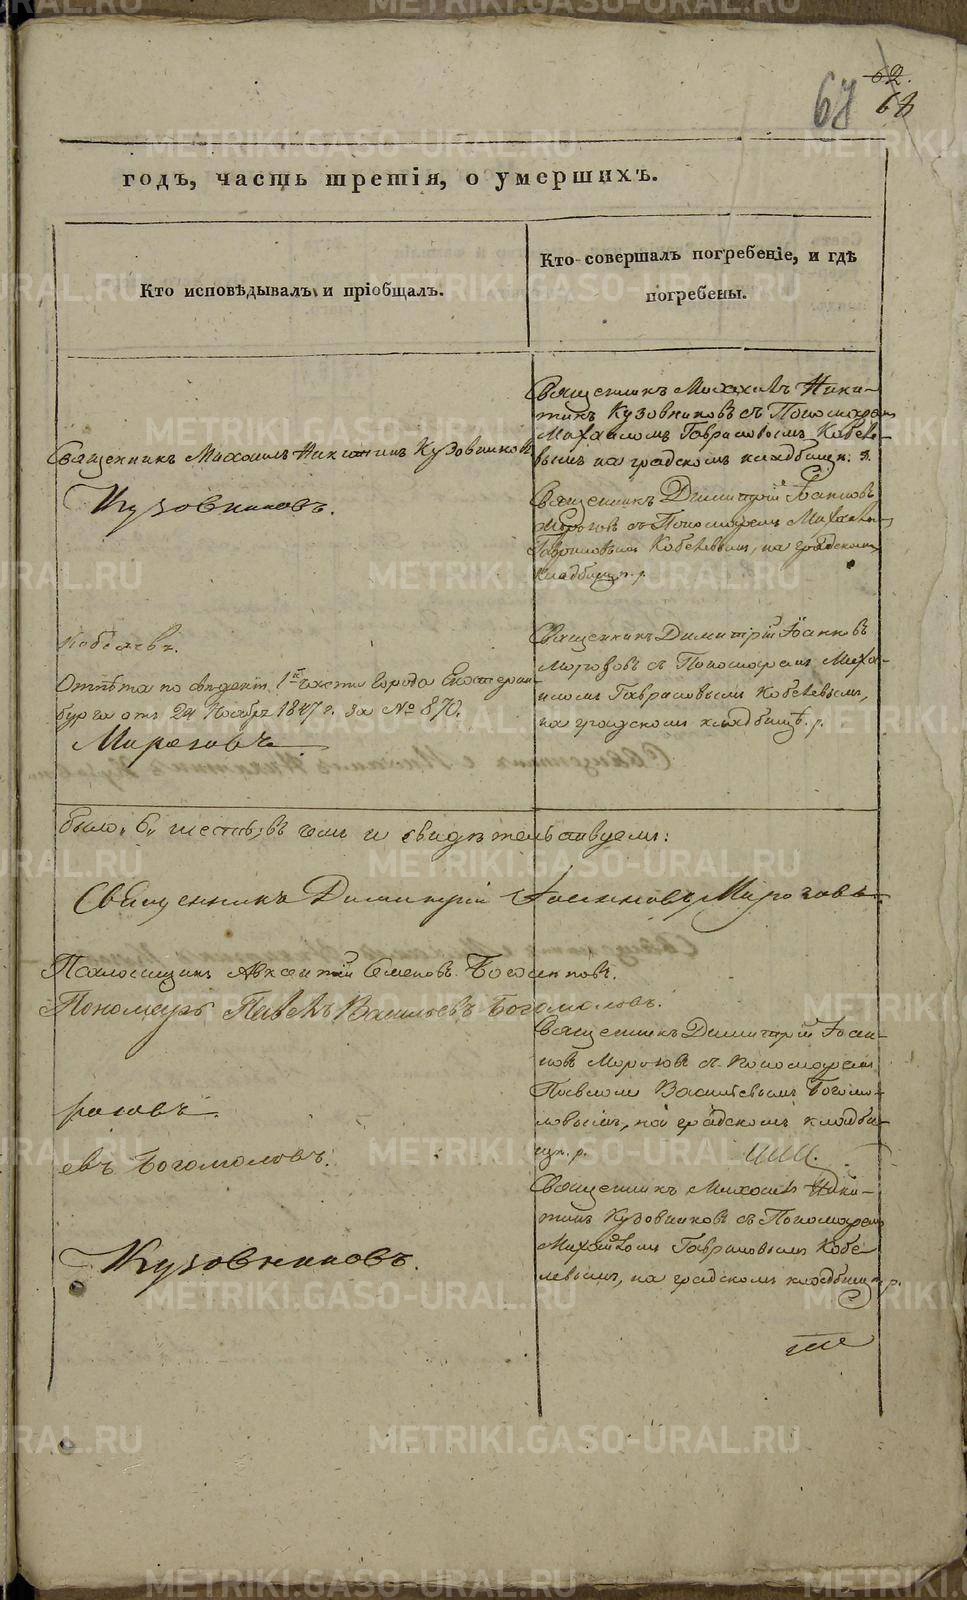 62.
68
68
годъ, часть третія, о умершихъ.
Кто исповѣдывалъ и пріобщалъ.
Кто совершалъ погребеніе, и гдѣ
погребены.
Священникъ Михаилъ Никитинъ Кузовниковъ
Кузовниковъ.
Священникъ Михаилъ Ники-
тинъ Кузовниковъ съ Пономаремъ
Михаиломъ Гавриловымъ Кобеле-
вымъ на градскомъ кладбищѣ.
Священникъ Димитрій Іоанновъ
съ Пономаремъ Михаиломъ
Гавриловымъ Кобелевымъ, на градскомъ
кладбищѣ. р.
Кобелевъ.
Отпѣта по свѣдѣнію 1й части города Екатерин-
бурга отъ 24 Ноября 1847 г. за № 870.
Священникъ Димитрій Іоанновъ
съ Пономаремъ Миха-
иломъ Гавриловымъ Кобелевымъ,
на градскомъ кладбищѣ. р.
было 6, шесть; въ чемъ и свидѣтельствуемъ:
Священникъ Димитрій Іоанновъ
Семеновъ
Пономарь Павелъ Васильевъ Богомоловъ.
Священникъ Димитрій Іоан-
новъ съ Пономаремъ
Павломъ Васильевымъ Богомо-
ловымъ, на градскомъ кладби-
щѣ. р.
евъ Богомоловъ.
Священникъ Михаилъ Ники-
тинъ Кузовниковъ съ Пономаремъ
Михаиломъ Гавриловымъ Кобе-
левымъ, на градскомъ кладбищѣ. р.
Кузовниковъ.
METRIKI.GASO-URAL.RU